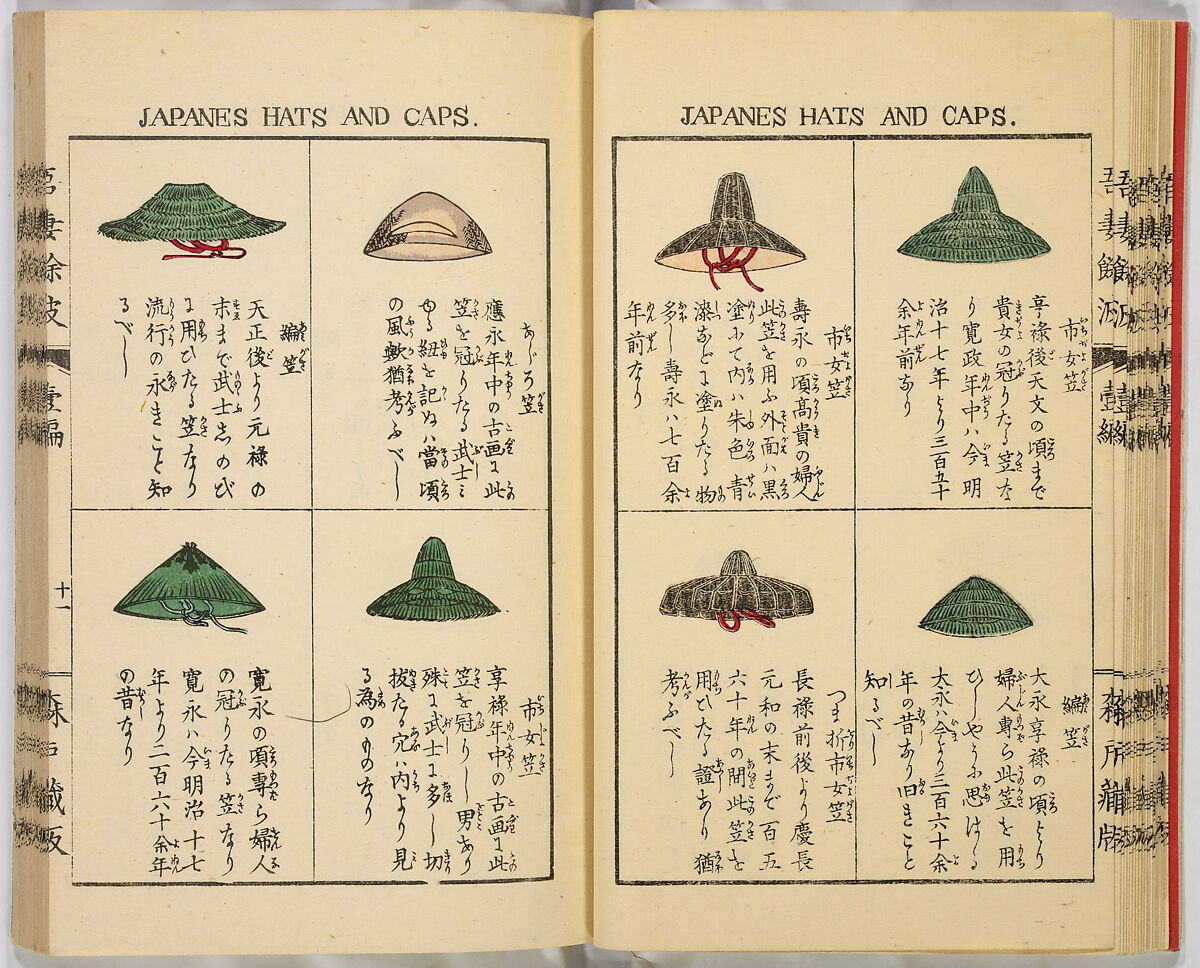 JAPANES HATS AND CAPS.
市女笠
享祿後天文の頃まで
貴女の冠りたる笠な
り寛政年中ハ今明
治十七年より三百五十
余年前なり
市女笠
壽永の頃髙貴の婦人
此笠を用ふ外面ハ黒
塗ふて内ハ朱色青
漆などに塗りたる物
多し壽永ハ七百余
年前なり
編笠
大永享祿の頃より
婦人專ら此笠を用
ひしやうふ思はる
大永ハ今より三百六十余
年の昔あり旧きこと
知るべし
つま折市女笠
長祿前後より慶長
元和の末まで百五
六十年の間此笠を
用ひたる證あり猶
考ふべし
JAPANES HATS AND CAPS.
あじろ笠
應永年中の古画に此
笠を冠りたる武士ミ
ゆる紐を記ぬハ當頃
の風歟猶考ふべし
編笠
天正後より元祿の
末まで武士志のび
に用ひたる笠なり
流行の永きこと知
るべし
市女笠
享祿年中の古画に此
笠を冠りし男あり
殊に武士に多し切
抜たる穴ハ内より見
る為のものなり
寛永の頃專ら婦人
の冠りたる笠なり
寛永ハ今明治十七
年より二百六十余年
の昔なり
十一